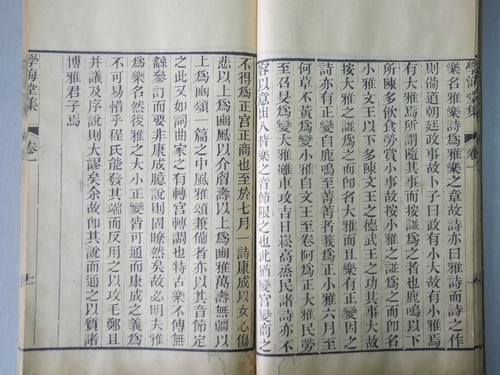 學海堂集 卷一
樂名雅樂詩爲雅樂之章故詩亦曰雅詩而詩之作
則備道朝廷政事故卜子曰政有小大故有小雅焉
有大雅焉所謂隨其事而按譜爲之者也鹿鳴以下
所陳多飲食勞賞小事故按小雅之譜爲之而即名
小雅文王以下多陳文王之德武王之功其事大故
按大雅之譜爲之而即名大雅而且樂有正變因之
詩亦有正變自鹿鳴至菁菁者莪爲正小雅六月至
何草不黃爲變小雅自文王至卷阿爲正大雅民勞
至召旻爲變大雅雖車攻吉日崧高烝民諸詩亦不
容以意出入皆樂之音節限之也此猶變宮變商之
不得爲正宮正商也至於七月一詩康成以女心傷
悲以上爲豳風以介眉壽以上爲豳雅萬壽無疆以
上爲豳頌一篇之中風雅頌兼備者亦以其音節定
之此又如詞曲家之有轉宮轉調也特古樂不傳無
緣參訂而要非康成臆說則固瞭然矣故必明夫雅
爲樂名然後雅之大小正變皆可通而康成之義爲
不可易惜乎程氏能發其端而反用之以攻毛鄭且
并議及序說則大謬矣余故即其說而通之以質諸
博雅君子焉
學海堂集 卷一